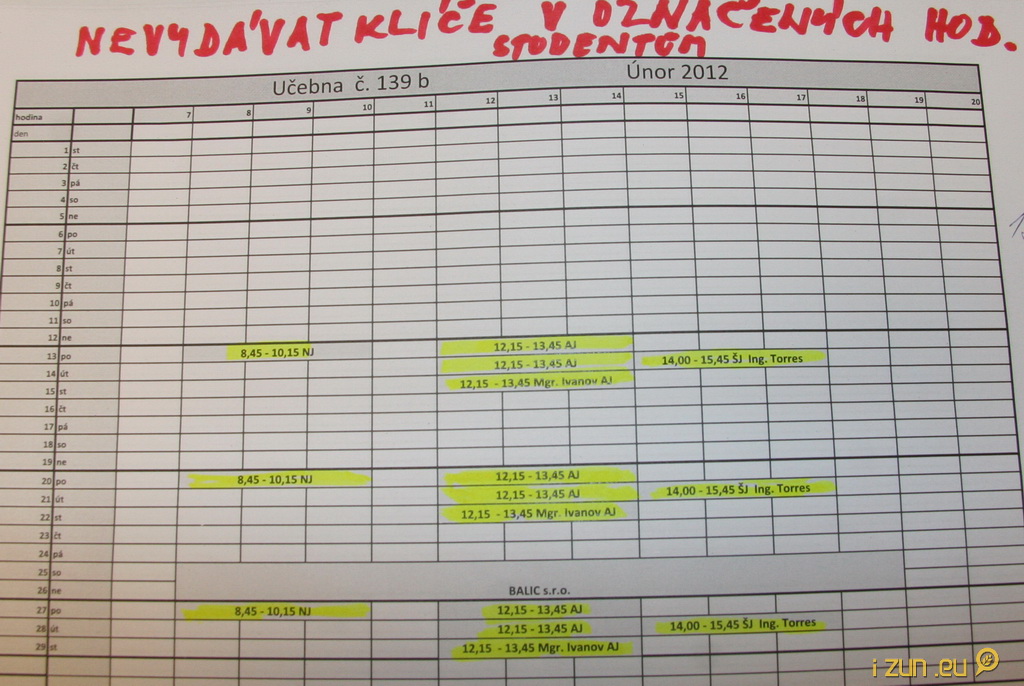 NEVYDÁVAT KLÍČE V OZNAČENÝCH HOD.
STUDENTŮM
Učebna č. 139 b Únor 2012
hodina 7 8 9 10 11 12 13 14 15 16 17 18 19 20
den
1 st
2 čt
3 pá
4 so
5 ne
6 po
7 út
8 st
9 čt
10 pá
11 so
12 ne
13 po 8,45 - 10,15 NJ 12,15 - 13,45 AJ
14 út 12,15 - 13,45 AJ 14,00 - 15,45 ŠJ Ing. Torres
15 st 12,15 - 13,45 Mgr. Ivanov AJ
16 čt
17 pá
18 so
19 ne
20 po 8,45 - 10,15 NJ 12,15 - 13,45 AJ
21 út 12,15 - 13,45 AJ 14,00 - 15,45 ŠJ Ing. Torres
22 st 12,15 - 13,45 Mgr. Ivanov AJ
23 čt
24 pá
25 so
26 ne BALIC s.r.o.
27 po 8,45 - 10,15 NJ 12,15 - 13,45 AJ
28 út 12,15 - 13,45 AJ 14,00 - 15,45 ŠJ Ing. Torres
29 st 12,15 - 13,45 Mgr. Ivanov AJ
i zun .eu